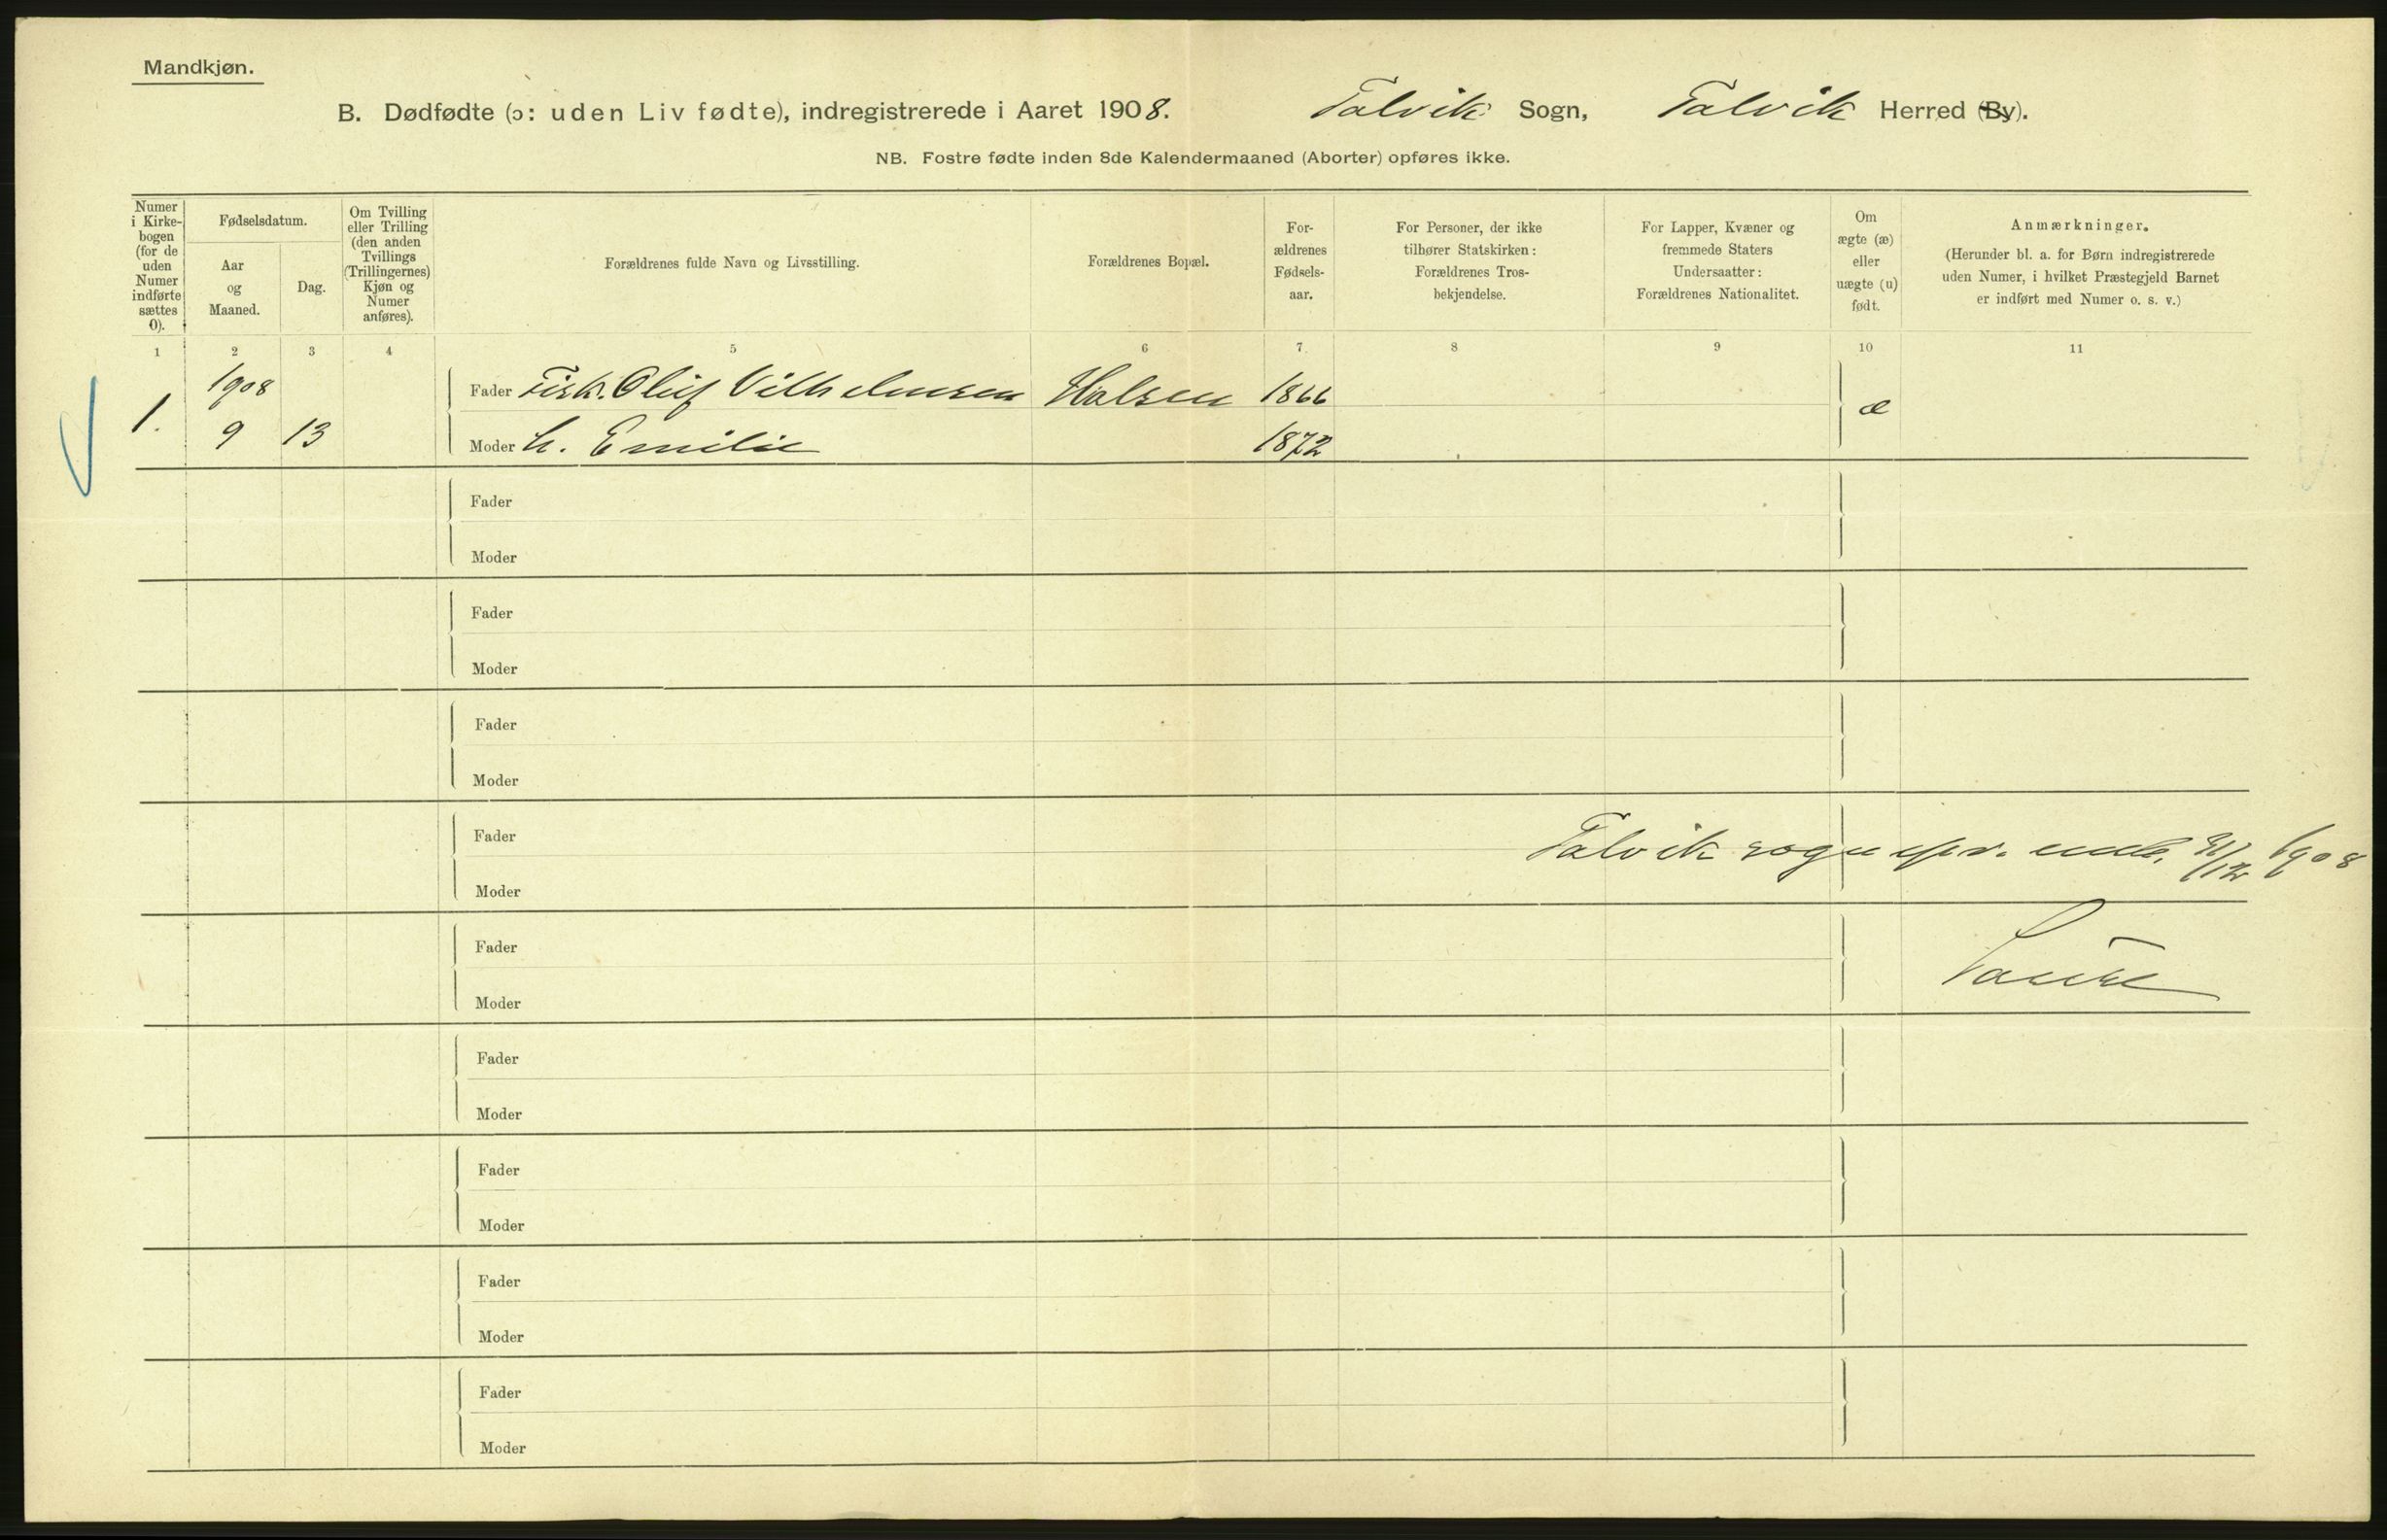 Mandkjøn.
B. Dødfødte (ɔ: uden Liv fødte), indregistrerede i Aaret 1908. Talvik Sogn, Talvik Herred (By).
NB. Fostre fødte inden 8de Kalendermaaned (Aborter) opføres ikke.
Numer
i Kirke-
bogen
(for de
uden
Numer
indførte
sættes
0).
Fødselsdatum.
Aar
og
Maaned.
Dag.
Om Tvilling
eller Trilling
(den anden
Tvillings
(Trillingernes)
Kjøn og
Numer
anføres).
Forældrenes fulde Navn og Livsstilling.
Forældrenes Bopæl.
For-
ældrenes
Fødsels-
aar.
For Personer, der ikke
tilhører Statskirken:
Forældrenes Tros-
bekjendelse.
For Lapper, Kvæner og
fremmede Staters
Undersaatter:
Forældrenes Nationalitet.
Om
ægte (æ)
eller
uægte (u)
født.
Anmærkninger.
(Herunder bl. a. for Børn indregistrerede
uden Numer, i hvilket Præstegjeld Barnet
er indført med Numer o. s. v.)
1 2 3 4 5 6 7 8 9 10 11
1908
Fader Fisk. Oluf Vilhelmsen Halsen 1866
1. æ
9 13 Moder h. Emilie 1872
Fader
Moder
Fader
Moder
Fader
Moder
Fader
Talvik sogn 31/12 1908
Moder
Fader
Moder
Fader
Moder
Fader
Moder
Fader
Moder
Fader
Moder